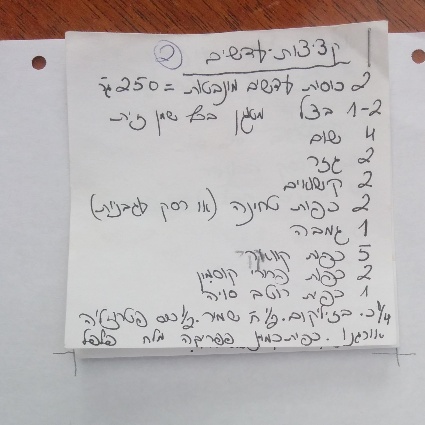 קציצות-עדשים (2)
2 כוסות עדשים מונבטות = 250 גר
1-2 בצל מטוגן בכף שמן זית
4 שום
2 גזר
2 קישואים
2 כפות טחינה (או רסק עגבניות)
1 גמבה
5 כפות
2 כפות פרורי קוסמין
1 כפית רוטב סויה
1/4 כ. בזיליקום. שמיר. 1/2 כוס פטרוזיליה
אורגנו. כפית כמון פפריקה מלח פלפל